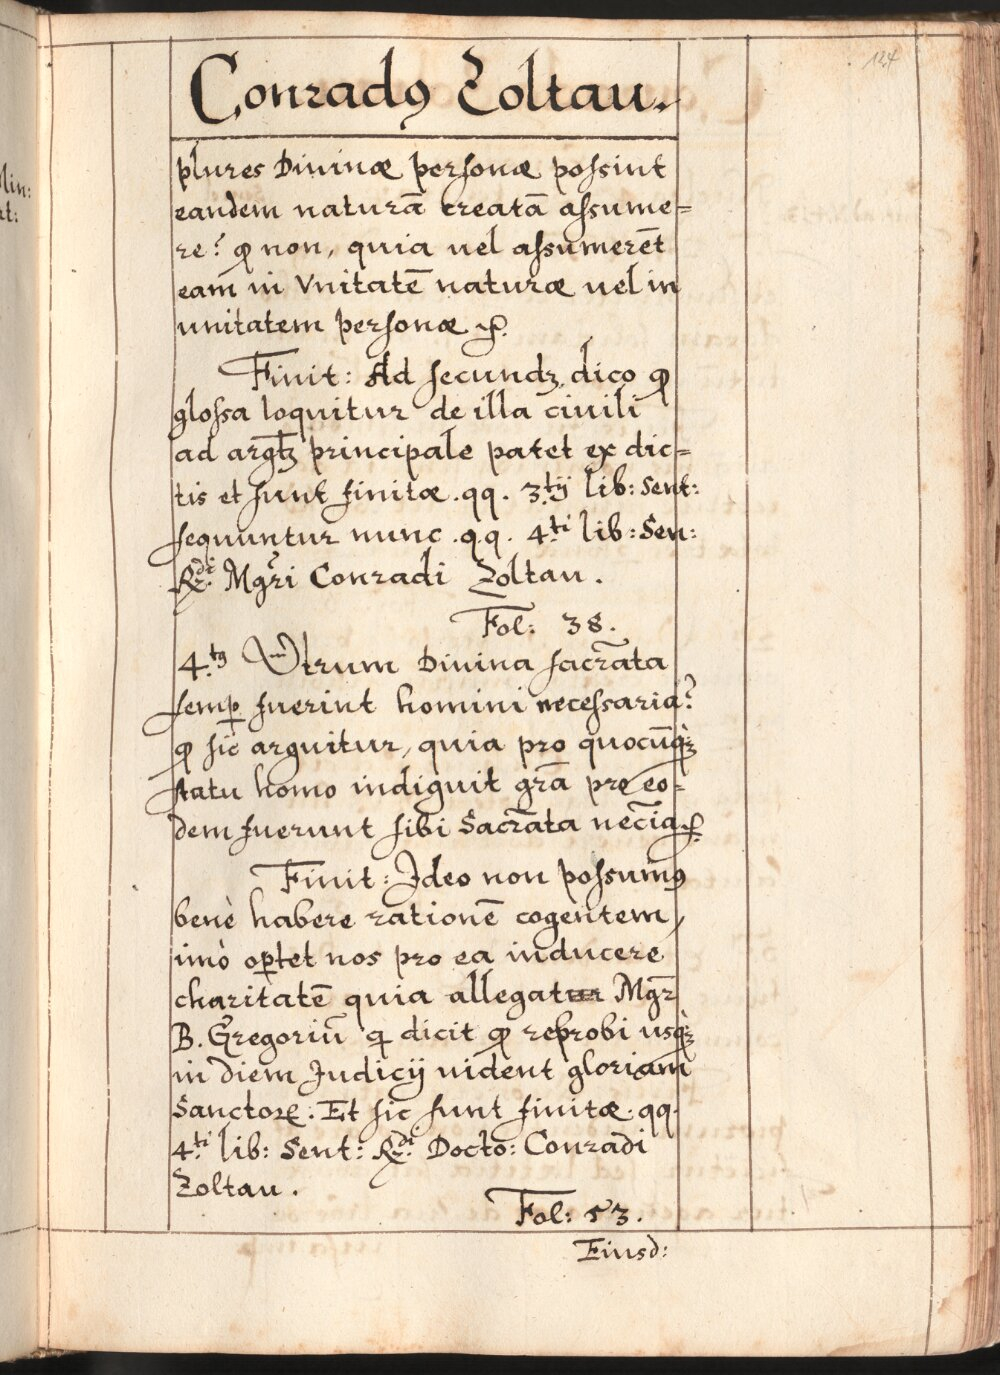 124
Conradꝯ Zoltau.
plures Divinæ personæ possint
eandem naturā creatā assume=
re? ꝙ non, quia uel assumerēt
eam̄ in Vnitatē naturæ uel in
unitatem personæ ꝛc.
Finit: Ad secundꝫ dico ꝙ
glossa loquitur de illa ciuili
ad argt̄ꝫ principale patet ex dic=
tis et sunt finitæ .qq. 3.tij lib: Sent:
sequuntur nunc .q.q. 4.ti lib: Sen:
Rdi: Mgr̄i Conradi Zoltau.
Fol: 38.
4.tꝯ Vtrum Divina sacr̄ata
semꝑ fuerint homini necessaria?
ꝙ sic arguitur, quia pro quocūqꝫ
statu homo indiguit gr̄a pro eo=
dem fuerunt sibi Sacr̄ata nec̄ia ꝛc.
Finit: Ideo non possumꝯ
benè habere rationē cogentem,
imò oꝑtet nos pro ea inducere
charitatē quia allegatur Mgr̄
B. Gregoriū qi dicit ꝙ reprobi usqꝫ
in diem Judicij uident gloriam
Sanctoꝝ. Et sic sunt finitæ .qq.
4.ti lib: Sent: Rdi: Docto: Conradi
Zoltau.
Fol: 53.
Eiusd: